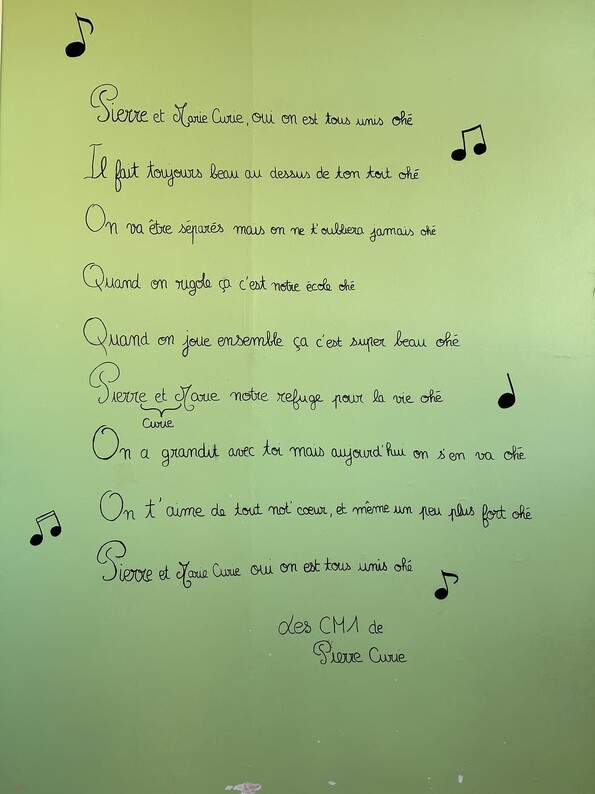 Pierre et Marie Curie, oui on est tous unis ohé
Il fait toujours beau au dessus de ton toit ohé
On va être séparés mais on ne t'oubliera jamais ohé
Quand on rigole ça c'est notre école ohé
Quand on joue ensemble ça c'est super beau ohé
Pierre et Marie notre refuge pour la vie ohé
Curie
On a grandit avec toi mais aujourd'hui on s'en va ohé
On t'aime de tout not' cœur, et même un peu plus fort ohé
Pierre et Marie Curie oui on est tous unis ohé
Les CM1 de
Pierre Curie